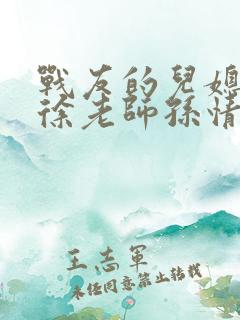 戰友的兒媳
徐老師孫情
王志軍
未經同意禁止轉載